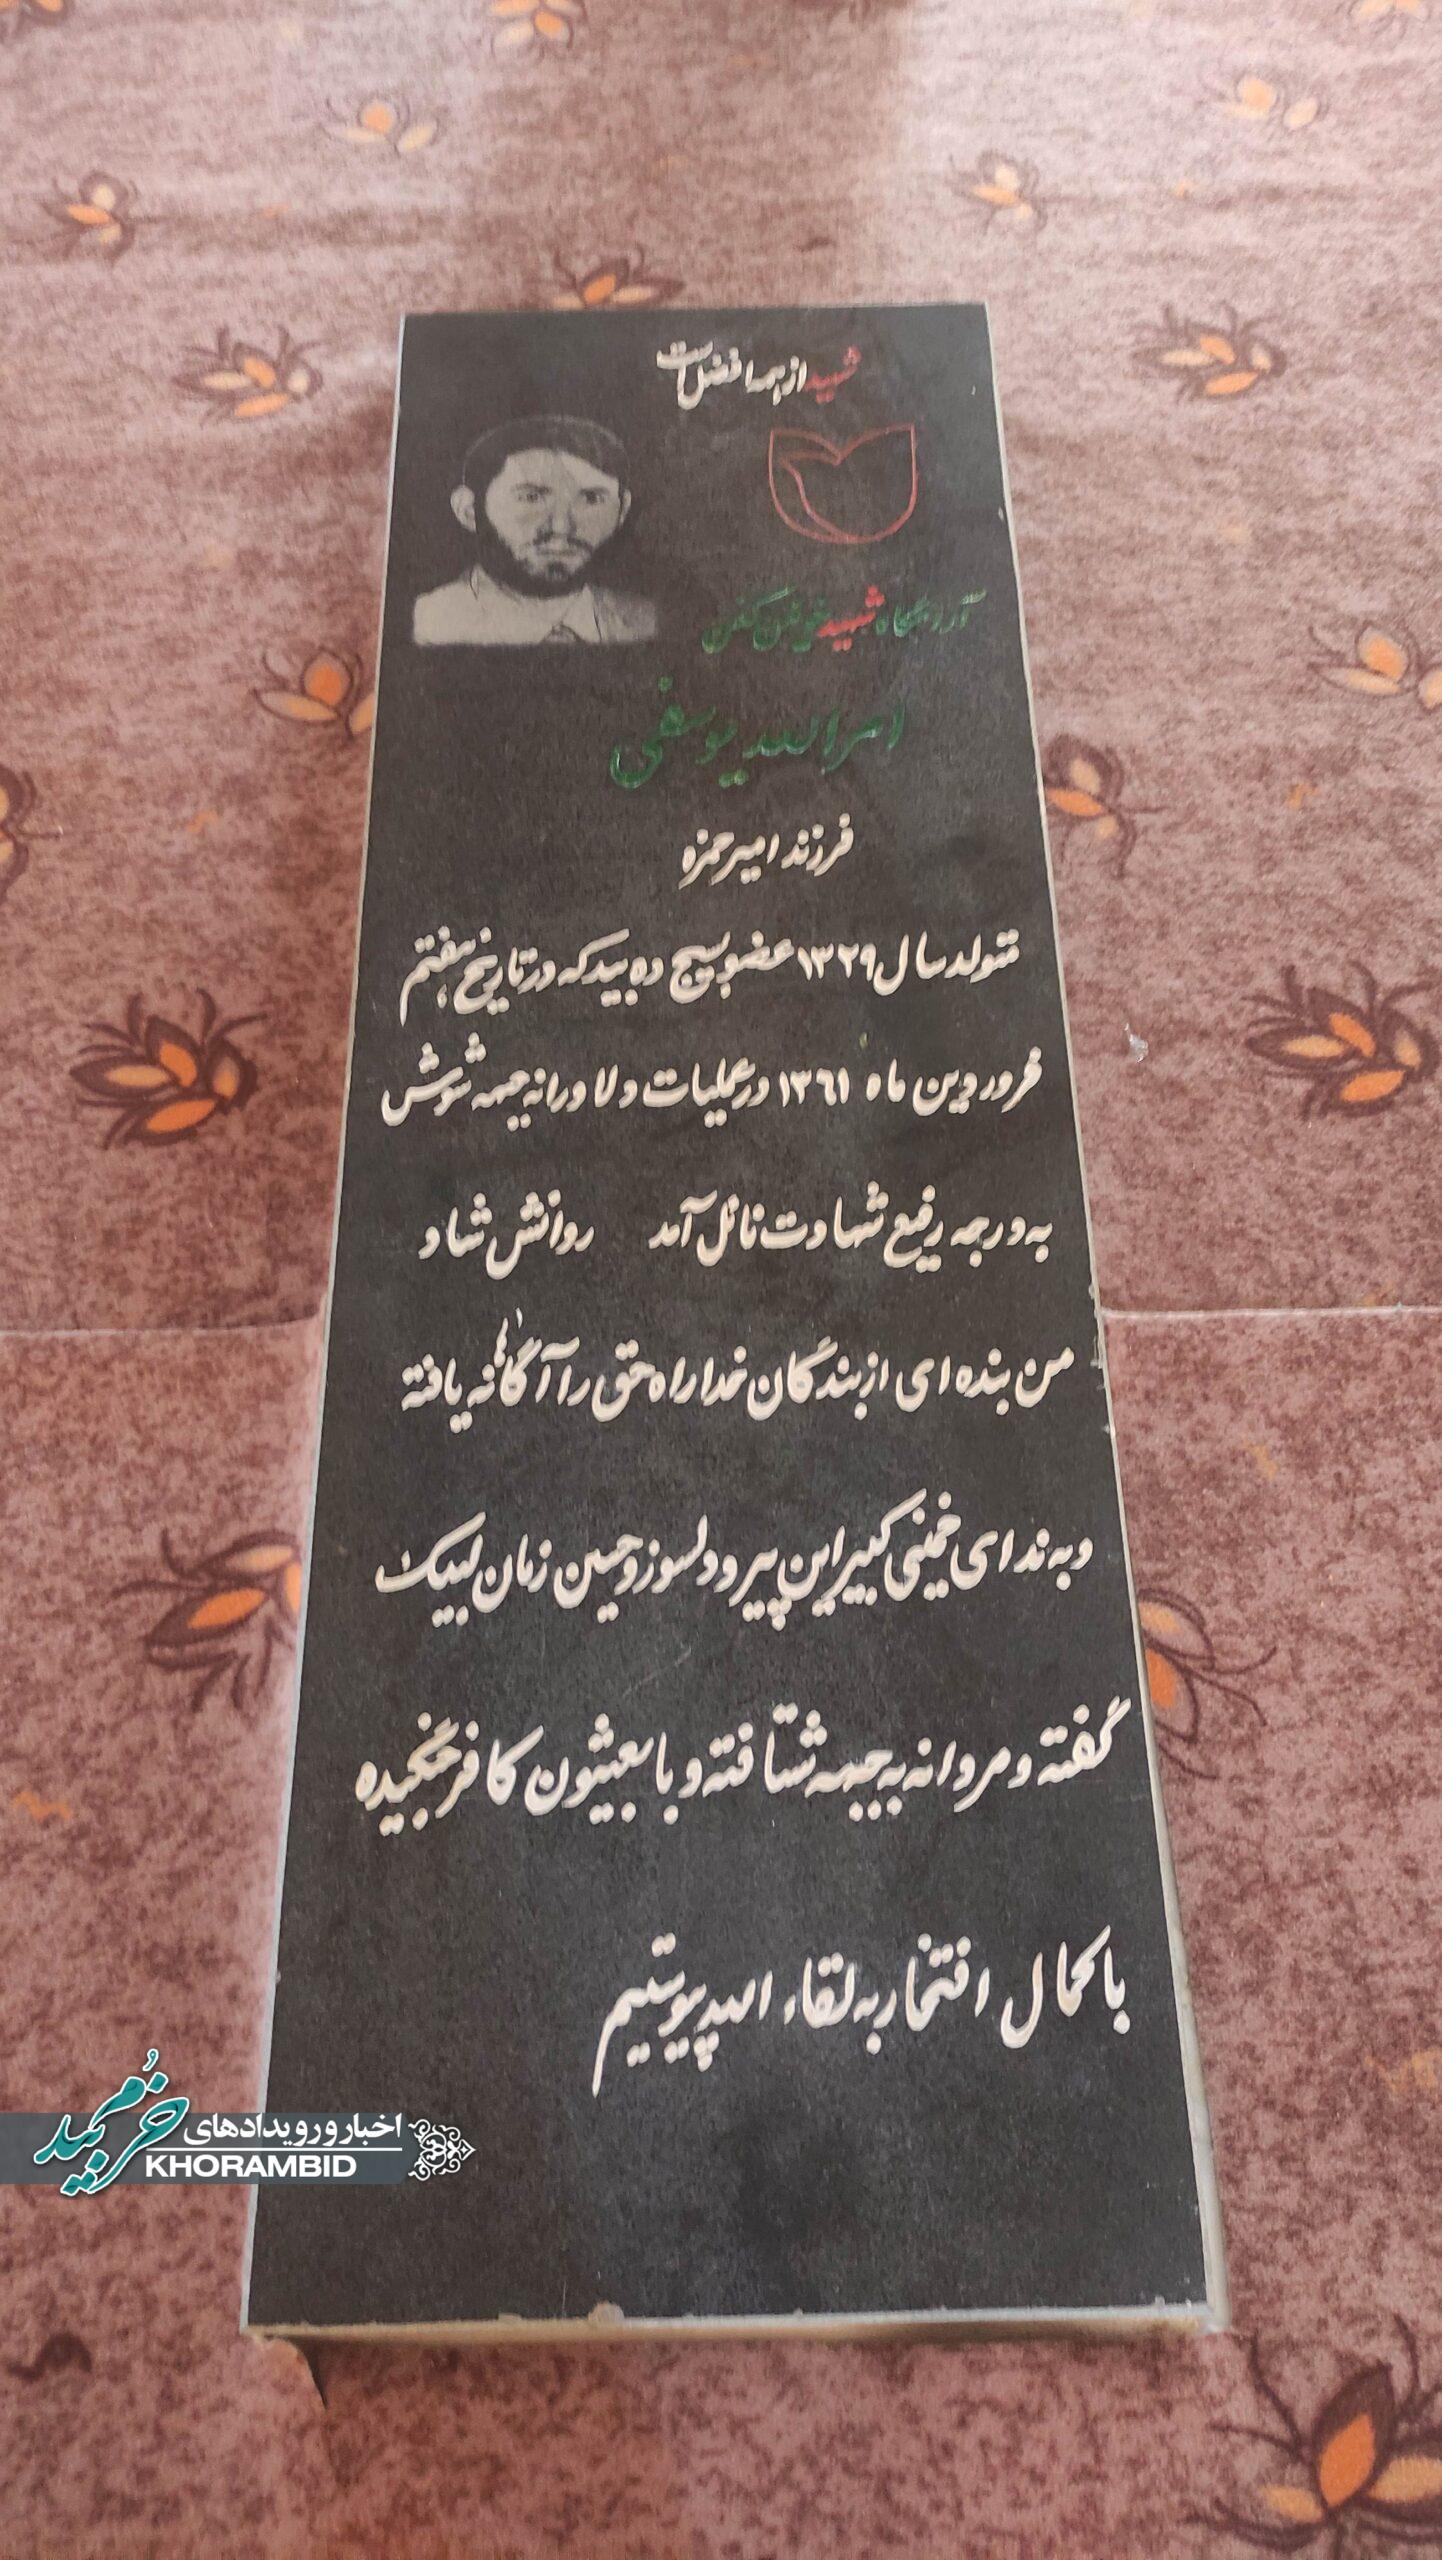 شهید از همه افضل است
آرامگاه شهید خونین کفن
امرالله یوسفی
فرزند امیرحمزه
متولد سال ۱۳۲۹ عضو بسیج ده بید که در تاریخ هفتم
فروردین ماه ۱۳۶۱ در عملیات دلاورانه جبهه شوش
به درجه رفیع شهادت نائل آمد روانش شاد
من بنده ای از بندگان خدا راه حق را آگاهانه یافته
و به ندای خمینی کبیر این پیر دلسوز و حسین زمان لبیک
گفته و مردانه به جبهه شتافته و با بعثیون کافر جنگیده
با کمال افتخار به لقاء الله پیوستیم
اخبار و رویدادهای
خرمبید
KHORAMBID